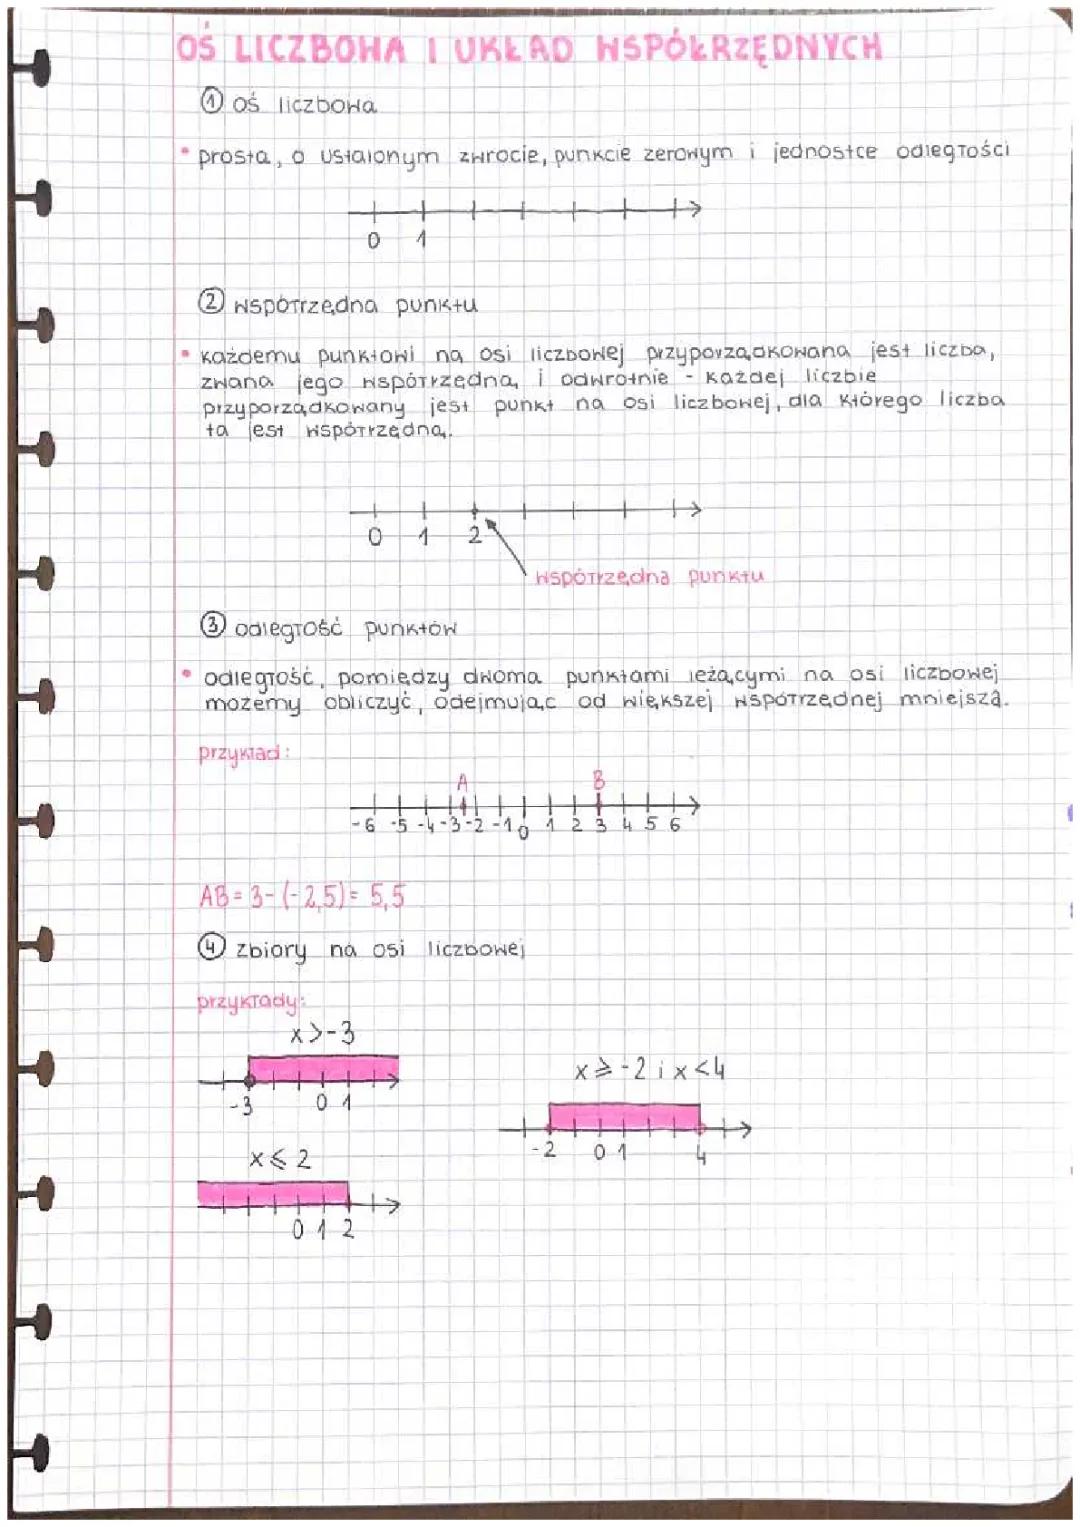 OŚ LICZBOWA I UKŁAD WSPÓŁRZĘDNYCH
① oś liczbowa
• prosta, o ustalonym zwrocie, punkcie zerowym i jednostce odległości
0 1
② współrzędna punktu
• każdemu punktowi na osi liczbowej przyporządkowana jest liczba,
zwana jego współrzędną, i odwrotnie - każdej liczbie
przyporządkowany jest punkt na osi liczbowej, dla którego liczba
ta jest współrzędną.
0 1 2
współrzędna punktu
③ odległość punktów
• odległość pomiędzy dwoma punktami leżącymi na osi liczbowej
możemy obliczyć, odejmując od większej współrzędnej mniejszą.
przykład:
A B
-6 -5 -4 -3 -2 -1 0 1 2 3 4 5 6
AB = 3-(-2,5)= 5,5
④ zbiory na osi liczbowej
przykłady:
x>-3
-3 0 1
x⩾-2 i x<4
-2 0 1 4
x⩽2
0 1 2